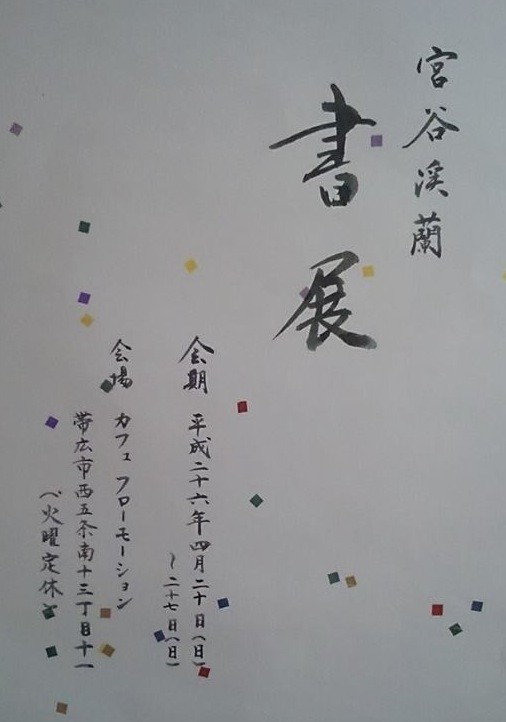 宮谷渓蘭
書展
会期 平成二十六年四月二十日(日)
~二十七日(日)
会場 カフェ フローモーション
帯広市西五条南十三丁目十一
(火曜定休)